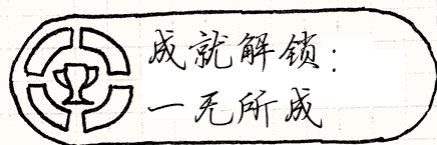 成就解锁:
一无所成